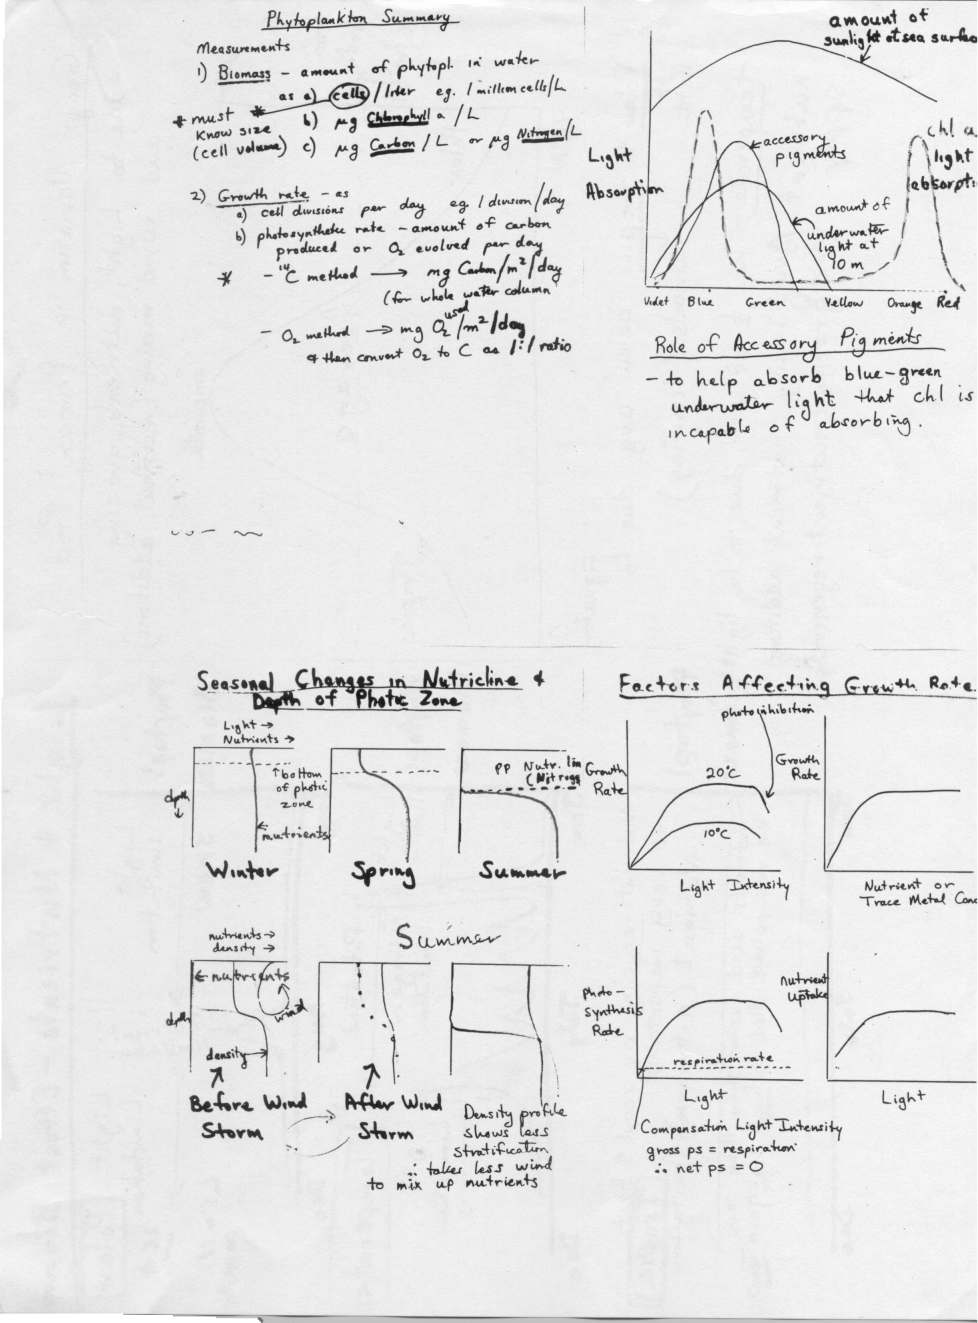 Phytoplankton Summary
Measurements
1) Biomass – amount of phytopl. in water
as a) cells/liter eg. 1 million cells/L
* must *
know size
(cell volume)
b) µg Chlorophyll a /L
c) µg Carbon/L or µg Nitrogen/L
2) Growth rate – as
a) cell divisions per day eg 1 division/day
b) photosynthetic rate – amount of carbon
produced or O₂ evolved per day
* – ¹⁴C method → mg Carbon/m²/day
(for whole water column
– O₂ method → mg O₂ used/m²/day
& then convert O₂ to C as 1:1 ratio
amount of
sunlight at sea surfac
Light
Absorption
accessory
pigments
chl a
light
absorpti
amount of
underwater
light at
10 m
Violet Blue Green Yellow Orange Red
Role of Accessory Pigments
– to help absorb blue-green
underwater light that chl is
incapable of absorbing.
Seasonal Changes in Nutricline &
Depth of Photic Zone
Light →
Nutrients →
depth
↑ bottom
of photic
zone
← nutrients
PP Nutr. lim
(Nitrog
Winter Spring Summer
nutrients →
density →
Summer
← nutrients
wind
depth
density
Before Wind
Storm
After Wind
Storm
Density profile
shows less
stratification
∴ takes less wind
to mix up nutrients
Factors Affecting Growth Rate
photoinhibition
Growth
Rate
20°C
10°C
Light Intensity
Growth
Rate
Nutrient or
Trace Metal Conc
Photo-
synthesis
Rate
respiration rate
Light
Compensation Light Intensity
gross ps = respiration
∴ net ps = 0
Nutrient
Uptake
Light